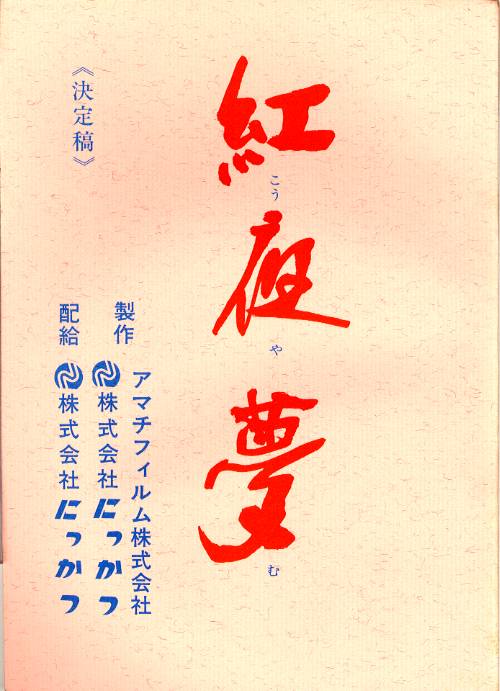 紅夜夢
こうやむ
《決定稿》
製作
アマチフィルム株式会社
株式会社にっかつ
配給
株式会社にっかつ